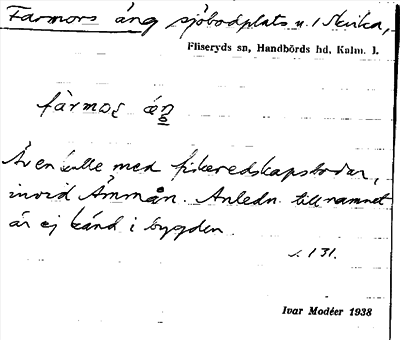 Farmors äng sjöbodplats u. / Skvika,
Fliseryds sn, Handbörds hd, Kalm. l.
fàrmos äŋ
Är en kulle med fiskeredskapsbodar,
invid Ämmån. Anledn. till namnet
är ej känd i bygden.
s. 131.
Ivar Modéer 1938